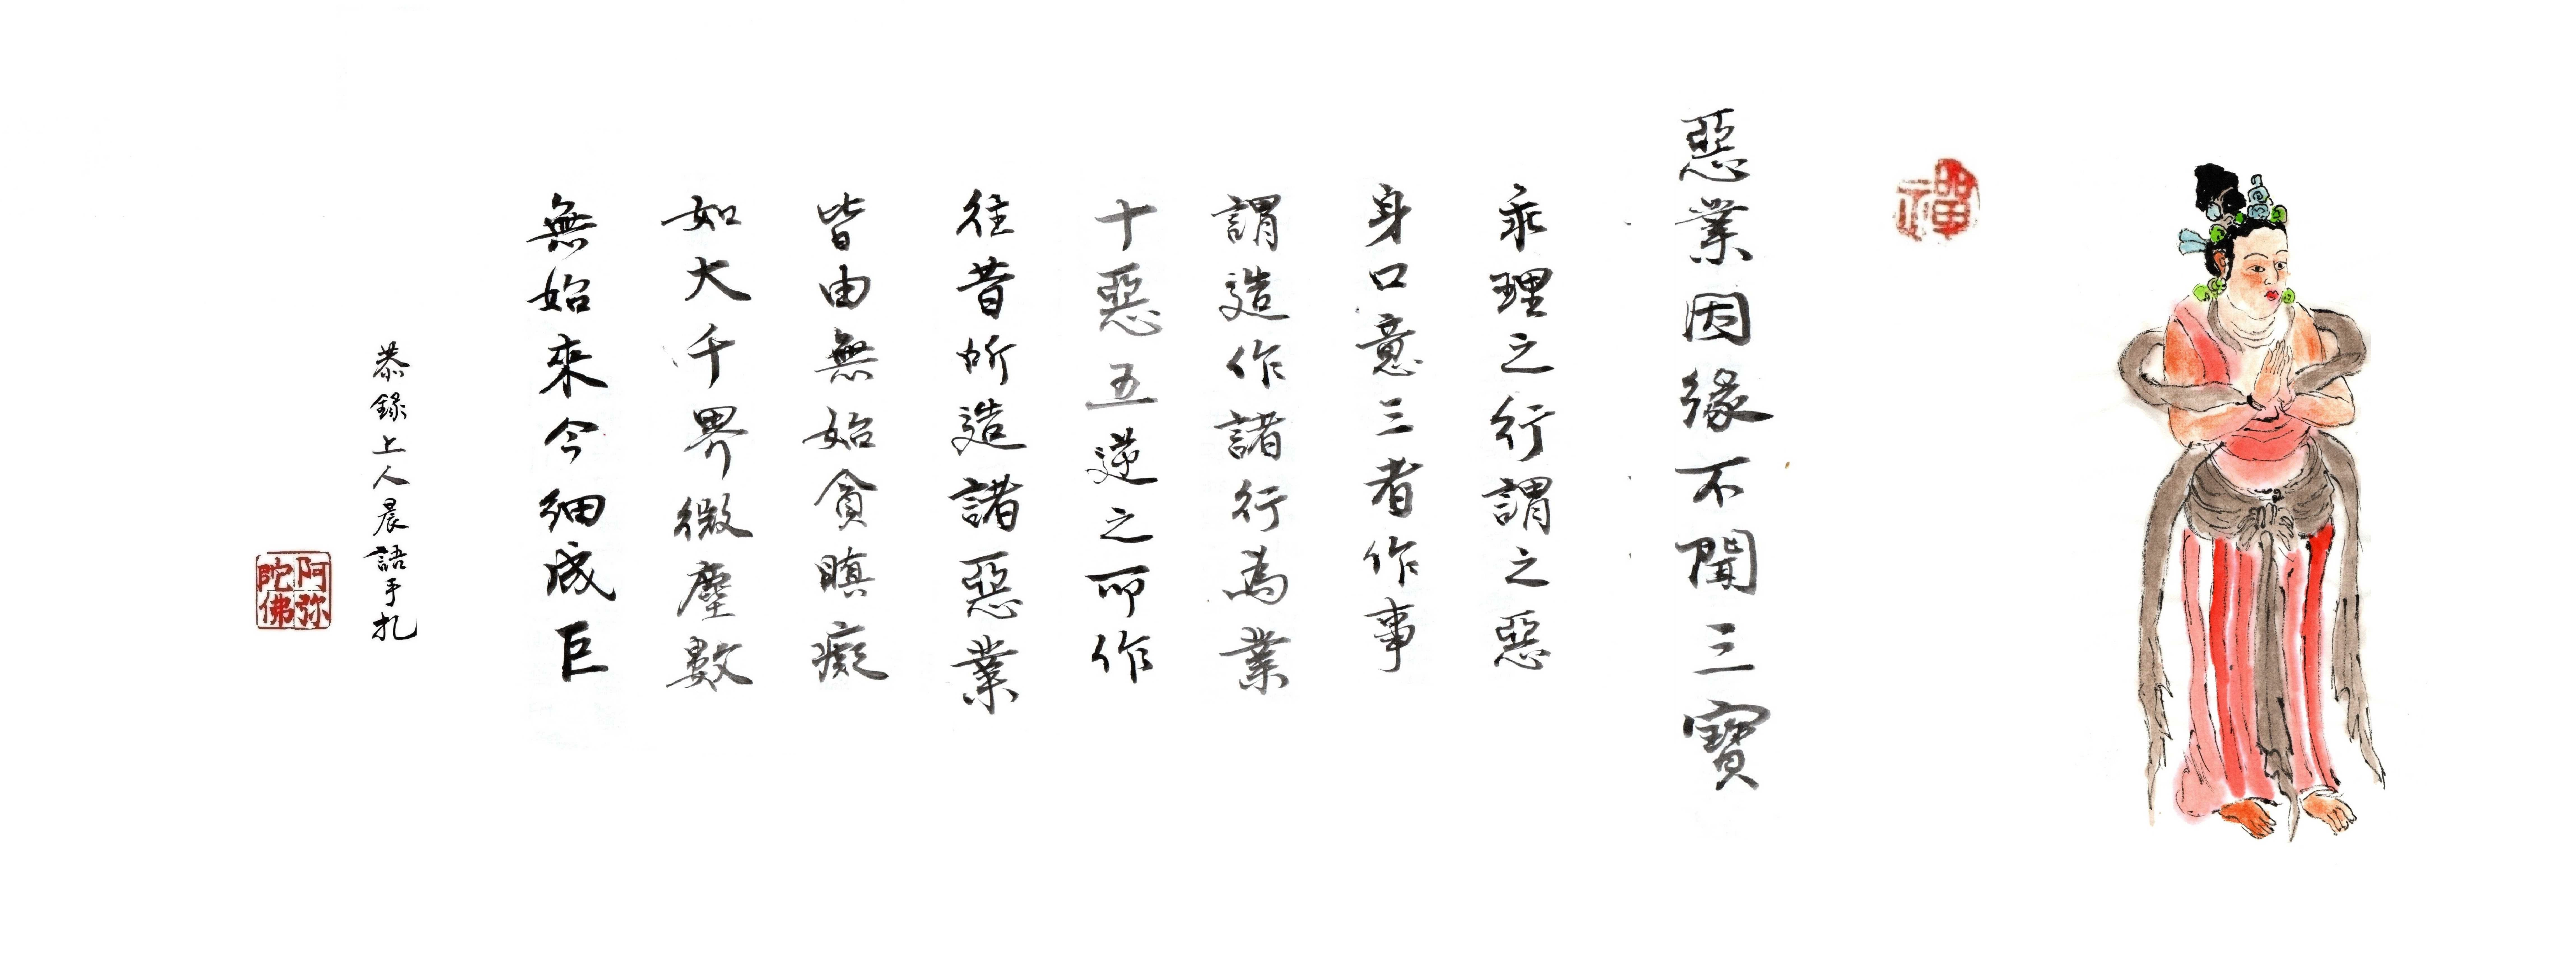 禪
惡業因緣不聞三寶
乖理之行謂之惡
身口意三者作事
謂造作諸行為業
十惡五逆之所作
往昔所造諸惡業
皆由無始貪瞋癡
如大千界微塵數
無始來今細成巨
恭錄上人晨語手扎
阿弥陀佛